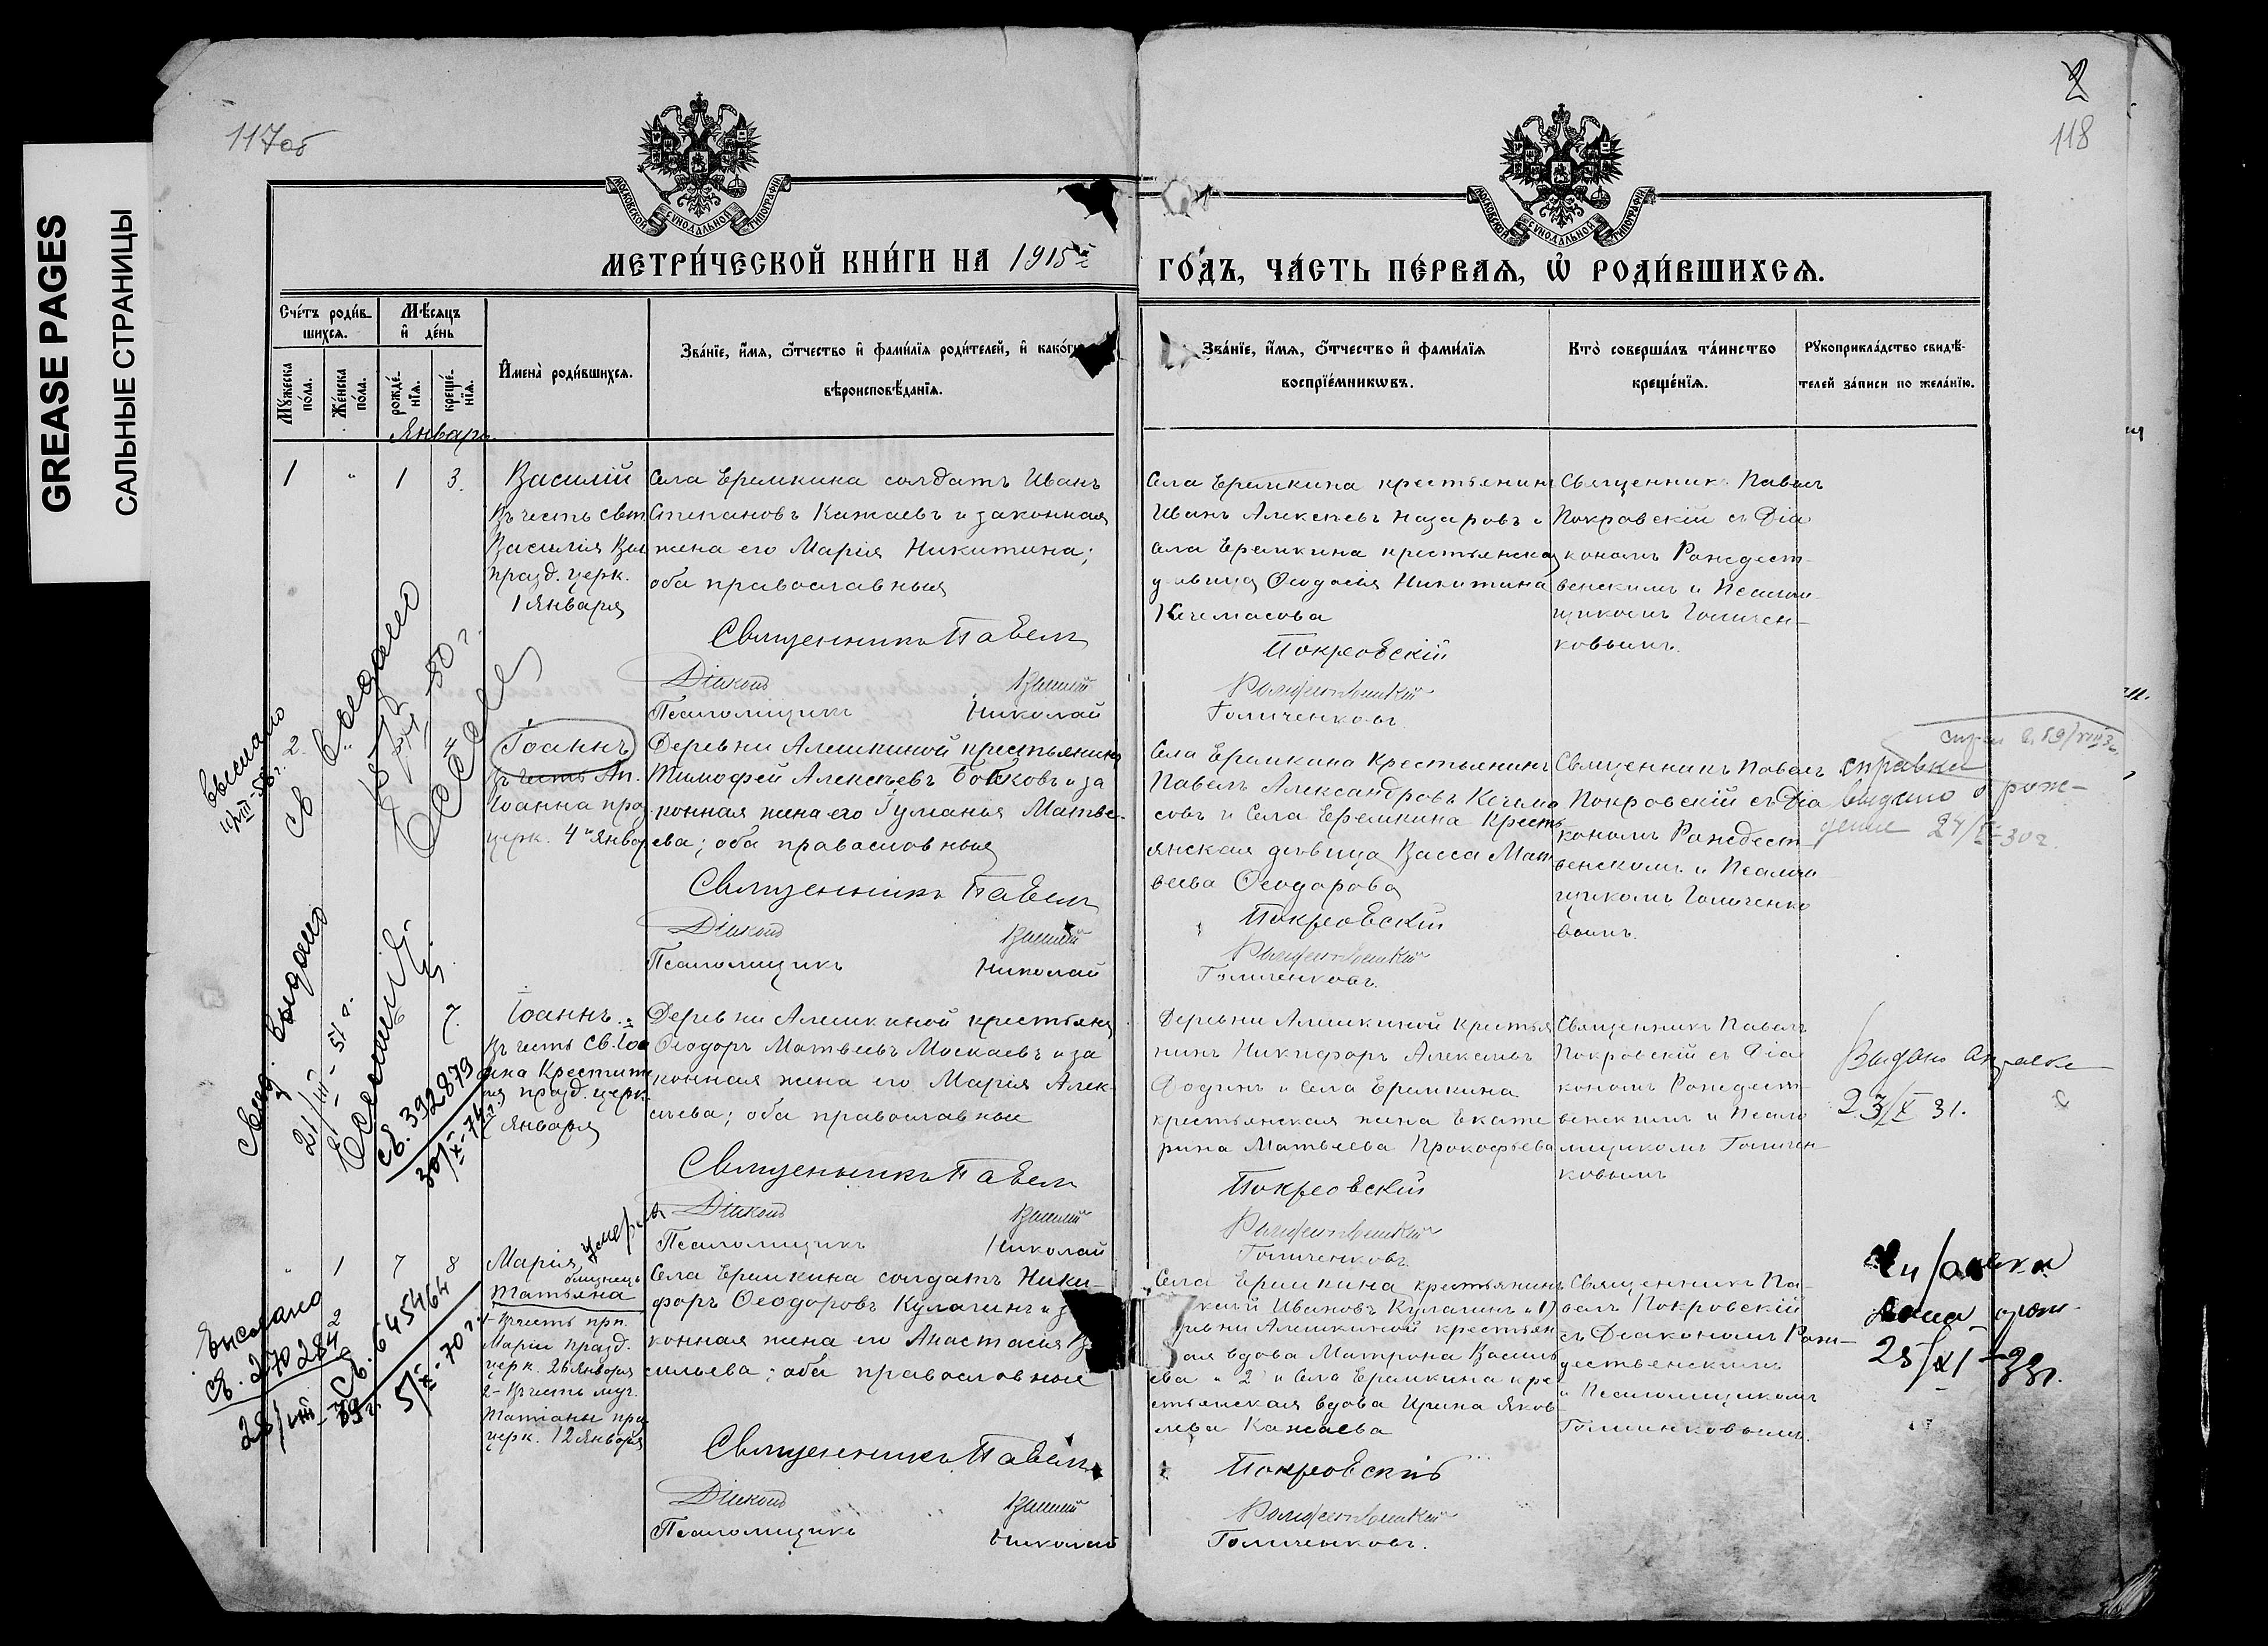 GREASE PAGES
САЛЬНЫЕ СТРАНИЦЫ
117об
2
118
МОСКОВСКОЙ СѴНОДАЛЬНОЙ ТИПОГРАФІИ
МОСКОВСКОЙ СѴНОДАЛЬНОЙ ТИПОГРАФІИ
МЕТРИ́ЧЕСКОЙ КНИ́ГИ НА 1915й
ГО́ДЪ, ЧА́СТЬ ПЕ́РВАЯ, Ѡ҆ РОДИ́ВШИХСѦ.
Сче́тъ роди́в-
шихсѧ.
Мѣ́сѧцъ
и҆ де́нь
Мꙋ́жеска
по́ла.
Же́нска
по́ла.
рожде́-
нїѧ.
креще́-
нїѧ.
И҆мена̀ роди́вшихсѧ.
Зва́нїе, и҆́мѧ, ѻ҆́тчество и҆ фами́лїѧ роди́телей, и҆ како́гѡ
вѣроисповѣ́данїѧ.
Зва́нїе, и҆́мѧ, ѻ҆́тчество и҆ фами́лїѧ
воспрїе́мникѡвъ.
Кто̀ соверша́лъ та́инство
креще́нїѧ.
Рꙋкоприкла́дство свидѣ́-
телей за́писи по жела́нїю.
Январь.
1 " 1 3.
Василій
Въ честь свт.
Василія Вел
празд. церк.
1 Января
Села Еремкина солдатъ Иванъ
Степановъ Кажаевъ и законная
жена его Марія Никитина;
оба православныя
Священникъ Павелъ
Діаконъ Василій
Псаломщикъ Николай
Села Еремкина крестьянинъ
Иванъ Алексѣевъ Назаровъ и
села Еремкина крестьянская
дѣвица Ѳеодосія Никитина
Кечемасова
Покровскій
Рождественскій
Голиченковъ.
Священникъ Павелъ
Покровскій съ Діа
кономъ Рождест-
венскимъ и Псалом
щикомъ Голичен-
ковымъ.
2. " 4
Іоаннъ
Въ честь Ап.
Іоанна праз
церк. 4го Январ
Деревни Алешкиной крестьянинъ
Тимофей Алексѣевъ Бобковъ и за
конная жена его Гуманья Матве-
ева; оба православныя
Священникъ Павелъ
Діаконъ Василій
Псаломщикъ Николай
Села Еремкина Крестьянинъ
Павелъ Александровъ Кечема
совъ и Села Еремкина Кресть
янская дѣвица Васса Мат
веева Ѳеодорова
Покровскій
Рождественскій
Голиченковъ.
Священникъ Павелъ
Покровскій съ Діа
кономъ Рождест
венскимъ и Псалом
щикомъ Голиченко
вымъ.
справка
выдано о рож-
дение 24/X-30г.
7.
Іоаннъ.
Въ честь Св. Іоа
нна Крестите
ля празд. церк.
7 Января
Деревни Алешкиной крестьянинъ
Ѳеодоръ Матвеевъ Москаевъ и за
конная жена его Марія Алек-
сѣева; оба православные
Священникъ Павелъ
Діаконъ Василій
Псаломщикъ Николай
Деревни Алешкиной крестья
нинъ Никифоръ Алексѣевъ
Фодинъ и села Еремкина
крестьянская жена Екате
рина Матвеева Прокофьева
Покровскій
Рождественскій
Голиченковъ.
Священникъ Павелъ
Покровскій съ Діа
кономъ Рождест-
венскимъ и Псало
мщикомъ Голичен-
ковымъ
23/X 31.
" 1 7 8
2
Марія умерла
близнецы
Татьяна
1- Въ честь прп.
Маріи празд.
церк. 26 Января
2- Въ честь муч.
Татіаны пра
церк. 12 Января
Села Еремкина солдатъ Ники-
форъ Ѳеодоровъ Кулагинъ и за
конная жена его Анастасія Ва
сильева; оба православные
Священникъ Павелъ
Діаконъ Василій
Псаломщикъ Николай
Села Еремкина крестьянинъ
Ивановъ Кулагинъ и 1)
Алешкиной крестьян
вдова Матрона Василь
ева и 2) и Села Еремкина кре
стьянская вдова Ирина Яков
лева Кажаева
Покровскій
Рождественскій
Голиченковъ.
Священникъ Па-
велъ Покровскій
съ Діакономъ Рож-
дественскимъ
и Псаломщикомъ
Голиченковымъ.
25/XI-33г.
выслано
св. выдано
50 г.
Свид. выдано
21/III-51 г.
св. 392879
30/X-74 г.
Выслано
св. 270284
28/VIII-
св. 645464
5/X-70 г.